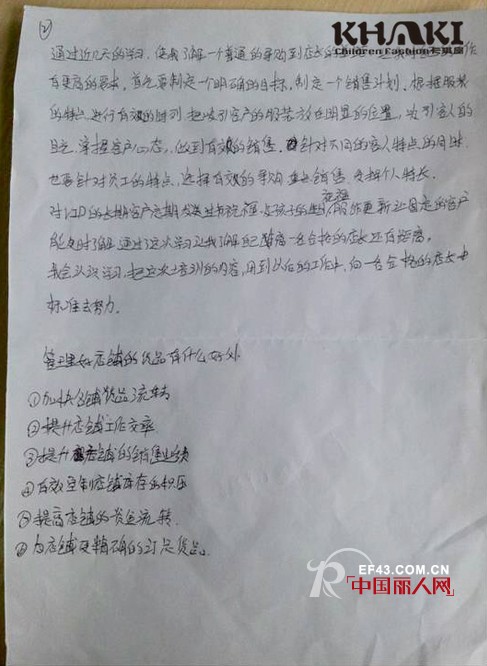 ②
KHAKI
Children Fashion卡琪屋
通过近几天的学习,使我了解一个普通的导购到店长的
有更高的要求,首先要制定一个明确的目标,制定一个销售计划。根据服装
的特点进行有效的陈列,把吸引客户的服装放在明显的位置,吸引客人的
目光,掌握客户心态,做到有效的销售。针对不同的客人特点的同时,
也要针对员工的特点,选择有效的导购 销售,发挥个人特长。
对VIP的长期客户定期发 祝福,与孩子的生日
能及时了解。通过这次学习让我了解自己距离一名合格的店长还有距离,
我会认识学习,把这次培训的内容,用到以后的工作中,向一名合格的店长
标准去努力。
管理好店铺的货品有什么好处
①加快店铺货品流转
②提升店铺工作效率
③提升店铺的销售业绩
④有效控制店铺库存的积压
⑤提高店铺的资金流转.
⑥为店铺更精确的订足货品.
EF43.COM.CN
中国丽人网